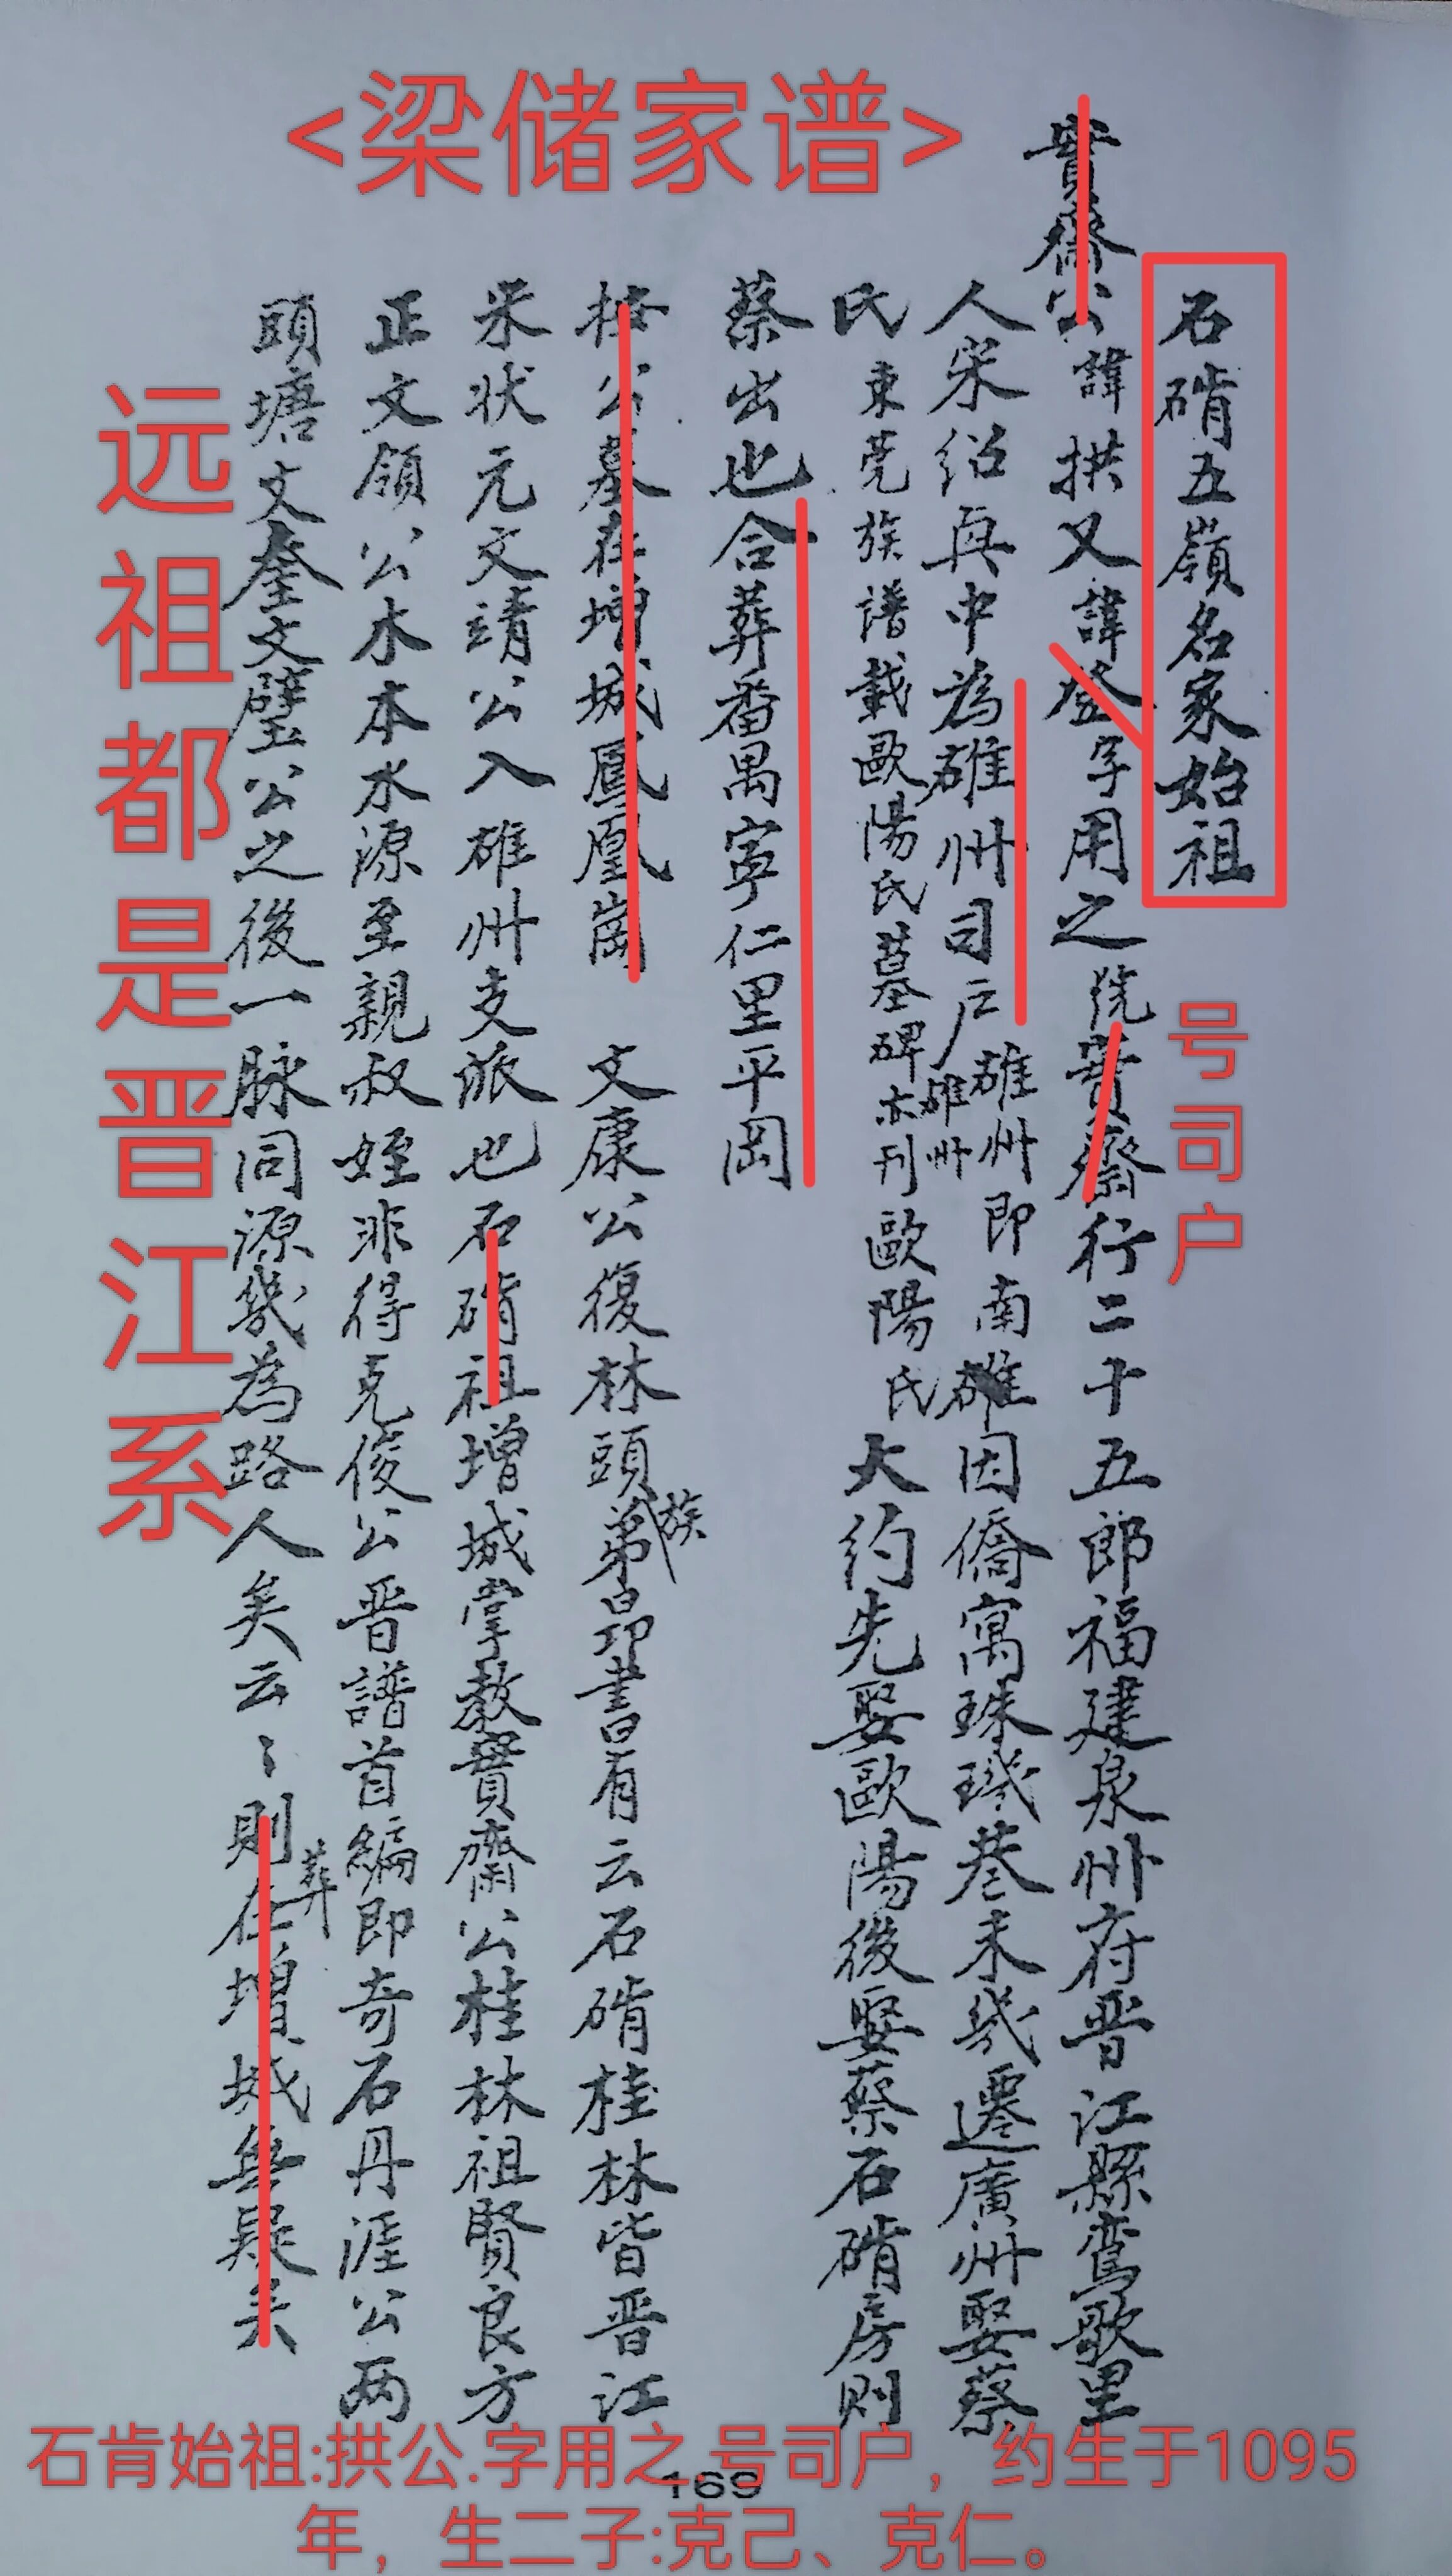 <梁储家谱>
石碃五嶺名家始祖
實齋公諱拱又諱登字用之號實齋行二十五郎福建泉州府晋江縣鸞歌里
人宋绍興中為雄州司户雄州即南雄因僑寓珠璣巷未幾遷廣州娶蔡
雄州
氏東莞族譜載歐陽氏墓碑亦刊歐陽氏大約先娶歐陽後娶蔡石碃房則
蔡出也合葬番禺寧仁里平岡
按公墓在增城鳳凰崗 文康公復林頭族弟昂書有云石碃桂林皆晋江
宋状元文靖公入雄州支派也石碃祖增城掌教實齋公桂林祖賢良方
正文領公木本水源至親叔姪非得克俊公晋譜首編即奇石丹涯公两
頭塘文奎文璧公之後一脉同源幾為路人矣云〻則葬在增城無疑矣
远祖都是晋江系
号司户
石肯始祖:拱公.字用之.号司户，约生于1095
年，生二子:克己、克仁。
169